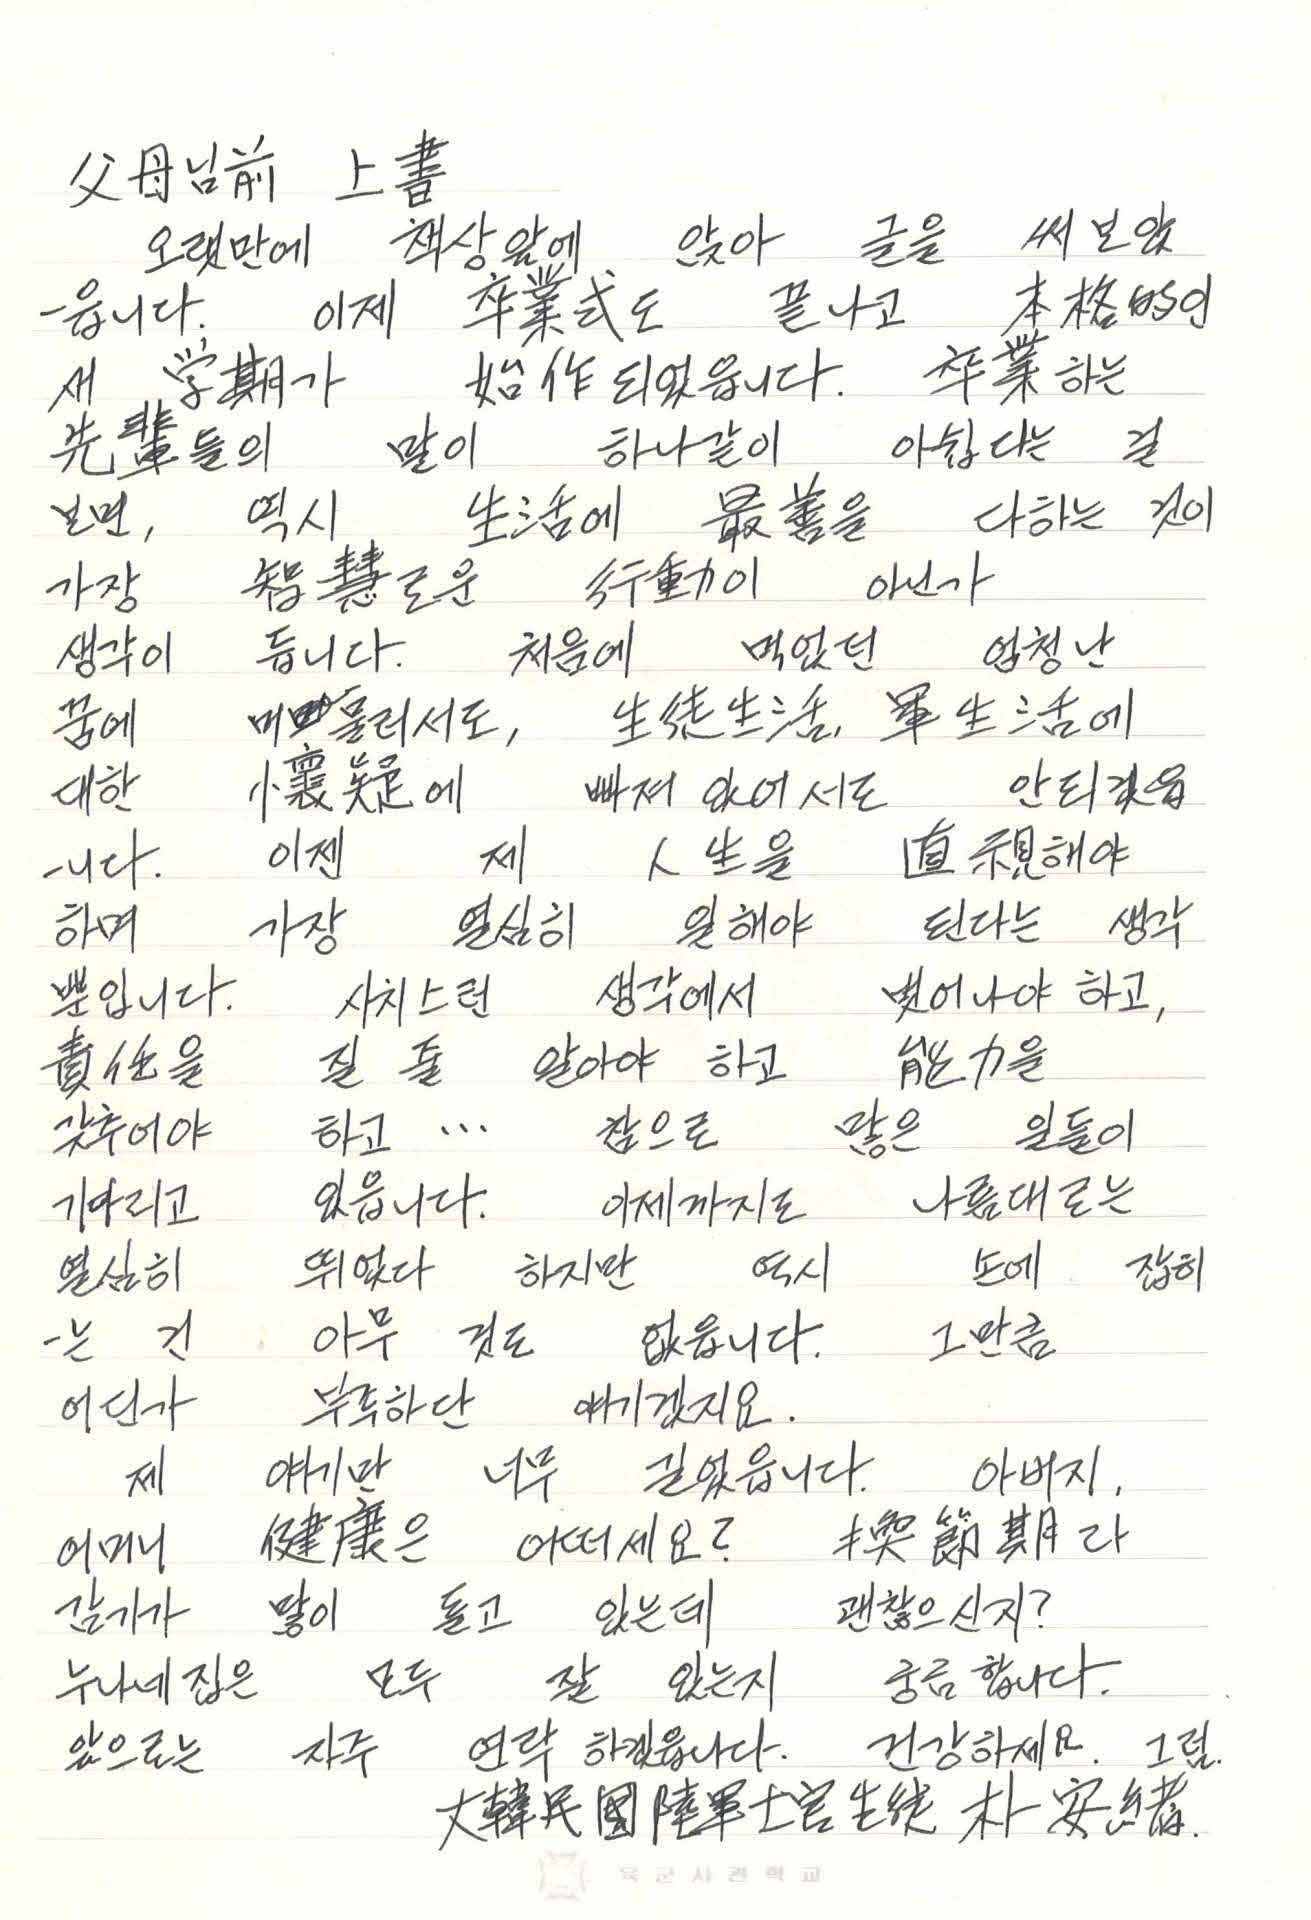 父母님前 上書
오랫만에 책상앞에 앉아 글을 써보았
-읍니다. 이제 卒業式도 끝나고 本格的인
새 学期가 始作되었읍니다. 卒業하는
先輩들의 말이 하나같이 아쉽다는 걸
보면, 역시 生活에 最善을 다하는 것이
가장 智慧로운 行動이 아닌가
생각이 듭니다. 처음에 먹었던 엄청난
꿈에 머물러서도, 生徒生活, 軍生活에
대한 懷疑에 빠져 있어서도 안되겠읍
-니다. 이젠 제 人生을 直視해야
하며 가장 열심히 일해야 된다는 생각
뿐입니다. 사치스런 생각에서 벗어나야 하고,
責任을 질 줄 알아야 하고 能力을
갖추어야 하고 … 참으로 많은 일들이
기다리고 있읍니다. 이제까지도 나름대로는
열심히 뛰었다 하지만 역시 손에 잡히
-는 건 아무 것도 없읍니다. 그만큼
어딘가 부족하단 얘기겠지요.
제 얘기만 너무 길었읍니다. 아버지,
어머니 健康은 어떠세요? 換節期라
감기가 많이 돌고 있는데 괜찮으신지?
누나네집은 모두 잘 있는지 궁금합니다.
앞으로는 자주 연락하겠읍니다. 건강하세요. 그럼.
大韓民國陸軍士官生徒 朴安緖.
육군사관학교